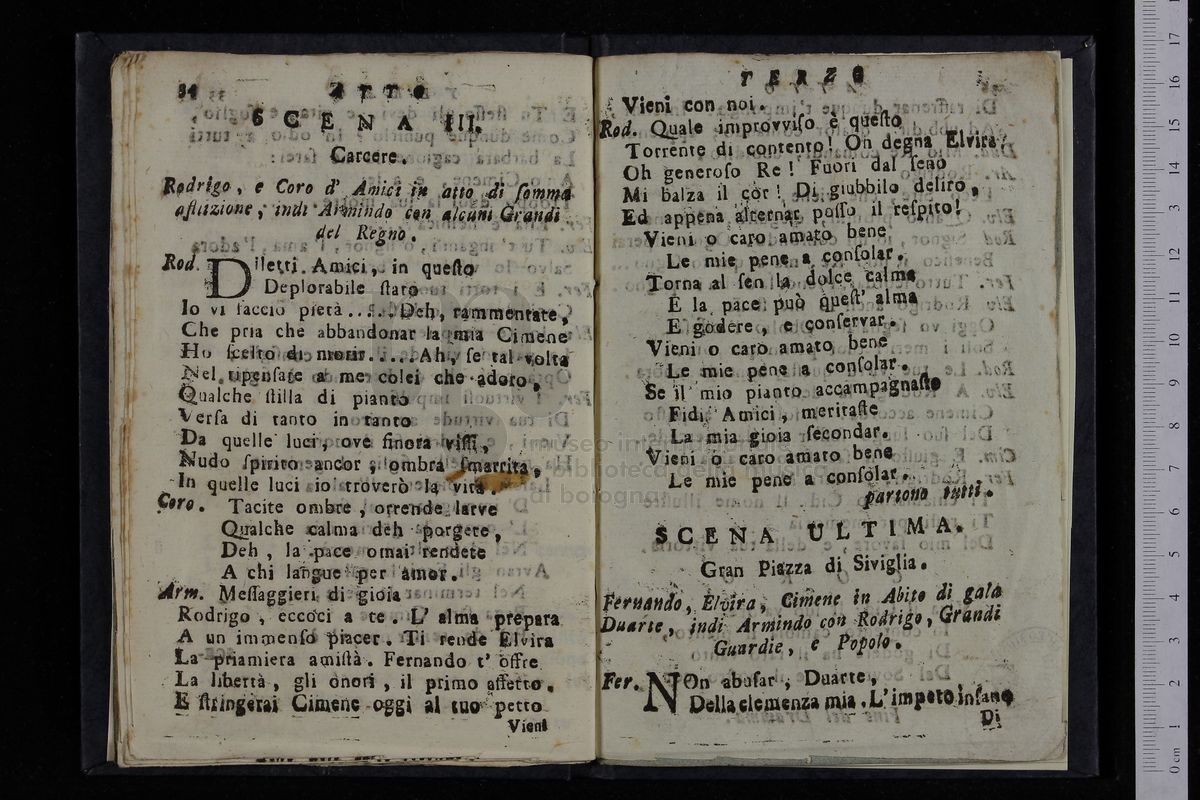 34 ATTO
SCENA III.
Carcere.
Rodrigo, e Coro d' Amici in atto di somma
aflizione, indi Armindo con alcuni Grandi
del Regno.
Rod. Diletti Amici, in questo
Deplorabile stato
Io vi faccio pietà..... Deh, rammentate,
Che pria che abbandonar la mia Cimene
Ho scelto di morir..... Ah, se tal volta
Nel ripensare a me colei che adoro,
Qualche stilla di pianto
Versa di tanto in tanto
Da quelle luci, ove finora vissi,
Nudo spirito ancor, ombra smarrita,
In quelle luci io troverò la vita.
Coro. Tacite ombre, orrende larve
Qualche calma deh porgete,
Deh, la pace omai rendete
A chi langue per amor.
Arm. Messaggieri di gioia
Rodrigo, eccoci a te. L' alma prepara
A un immenso piacer. Ti rende Elvira
La priamiera amistà. Fernando t' offre
La libertà, gli onori, il primo affetto.
E stringerai Cimene oggi al tuo petto
Vieni
TERZO
Vieni con noi.
Rod. Quale improvviso è questo
Torrente di contento! Oh degna Elvira,
Oh generoso Re! Fuori dal seno
Mi balza il cor! Di giubbilo deliro,
Ed appena alternar posso il respito!
Vieni o caro amato bene
Le mie pene a consolar.
Torna al sen la dolce calma
E la pace può quest' alma
E godere, e conservar.
Vieni o caro amato bene
Le mie pene a consolar.
Se il mio pianto accampagnaste
Fidi Amici, meritaste
La mia gioia secondar.
Vieni o caro amato bene
Le mie pene a consolar.
partono tutti.
SCENA ULTIMA.
Gran Piazza di Siviglia.
Fernando, Elvira, Cimene in Abito di gala
Duarte, indi Armindo con Rodrigo, Grandi
Guardie, e Popolo.
Fer. NOn abusar, Duarte,
Della clemenza mia. L'impeto insano
Di
museo
biblioteca della musica
di bologna